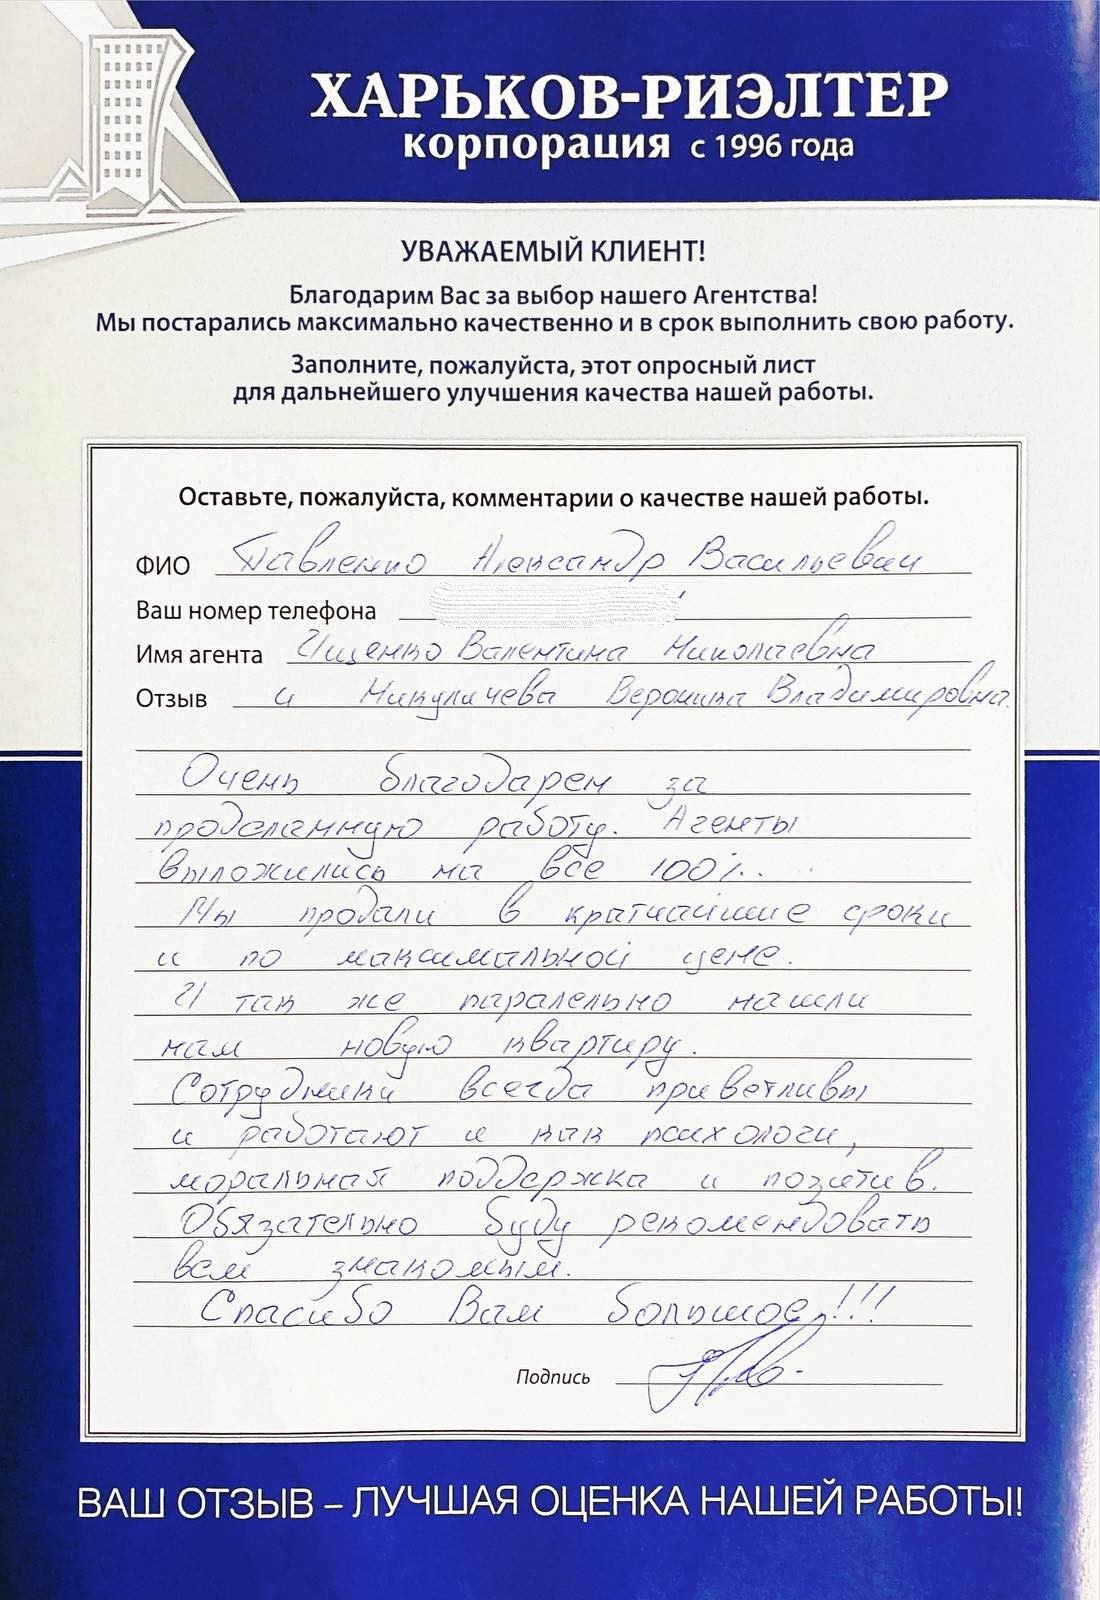 ХАРЬКОВ-РИЭЛТЕР
корпорация с 1996 года
УВАЖАЕМЫЙ КЛИЕНТ!
Благодарим Вас за выбор нашего Агентства!
Мы постарались максимально качественно и в срок выполнить свою работу.
Заполните, пожалуйста, этот опросный лист
для дальнейшего улучшения качества нашей работы.
Оставьте, пожалуйста, комментарии о качестве нашей работы.
ФИО Павленко Александр Васильевич
Ваш номер телефона
Имя агента Ищенко Валентина Николаевна
Отзыв и Микуличева Вероника Владимировна.
Очень благодарен за
проделанную работу. Агенты
выложились на все 100%.
Мы продали в кратчайшие сроки
и по максимальной цене.
И так же паралельно нашли
нам новую квартиру.
Сотрудники всегда приветливы
и работают и как психологи,
моральная поддержка и позитив.
Обязательно буду рекомендовать
всем знакомым.
Спасибо Вам большое!!!
Подпись
ВАШ ОТЗЫВ – ЛУЧШАЯ ОЦЕНКА НАШЕЙ РАБОТЫ!